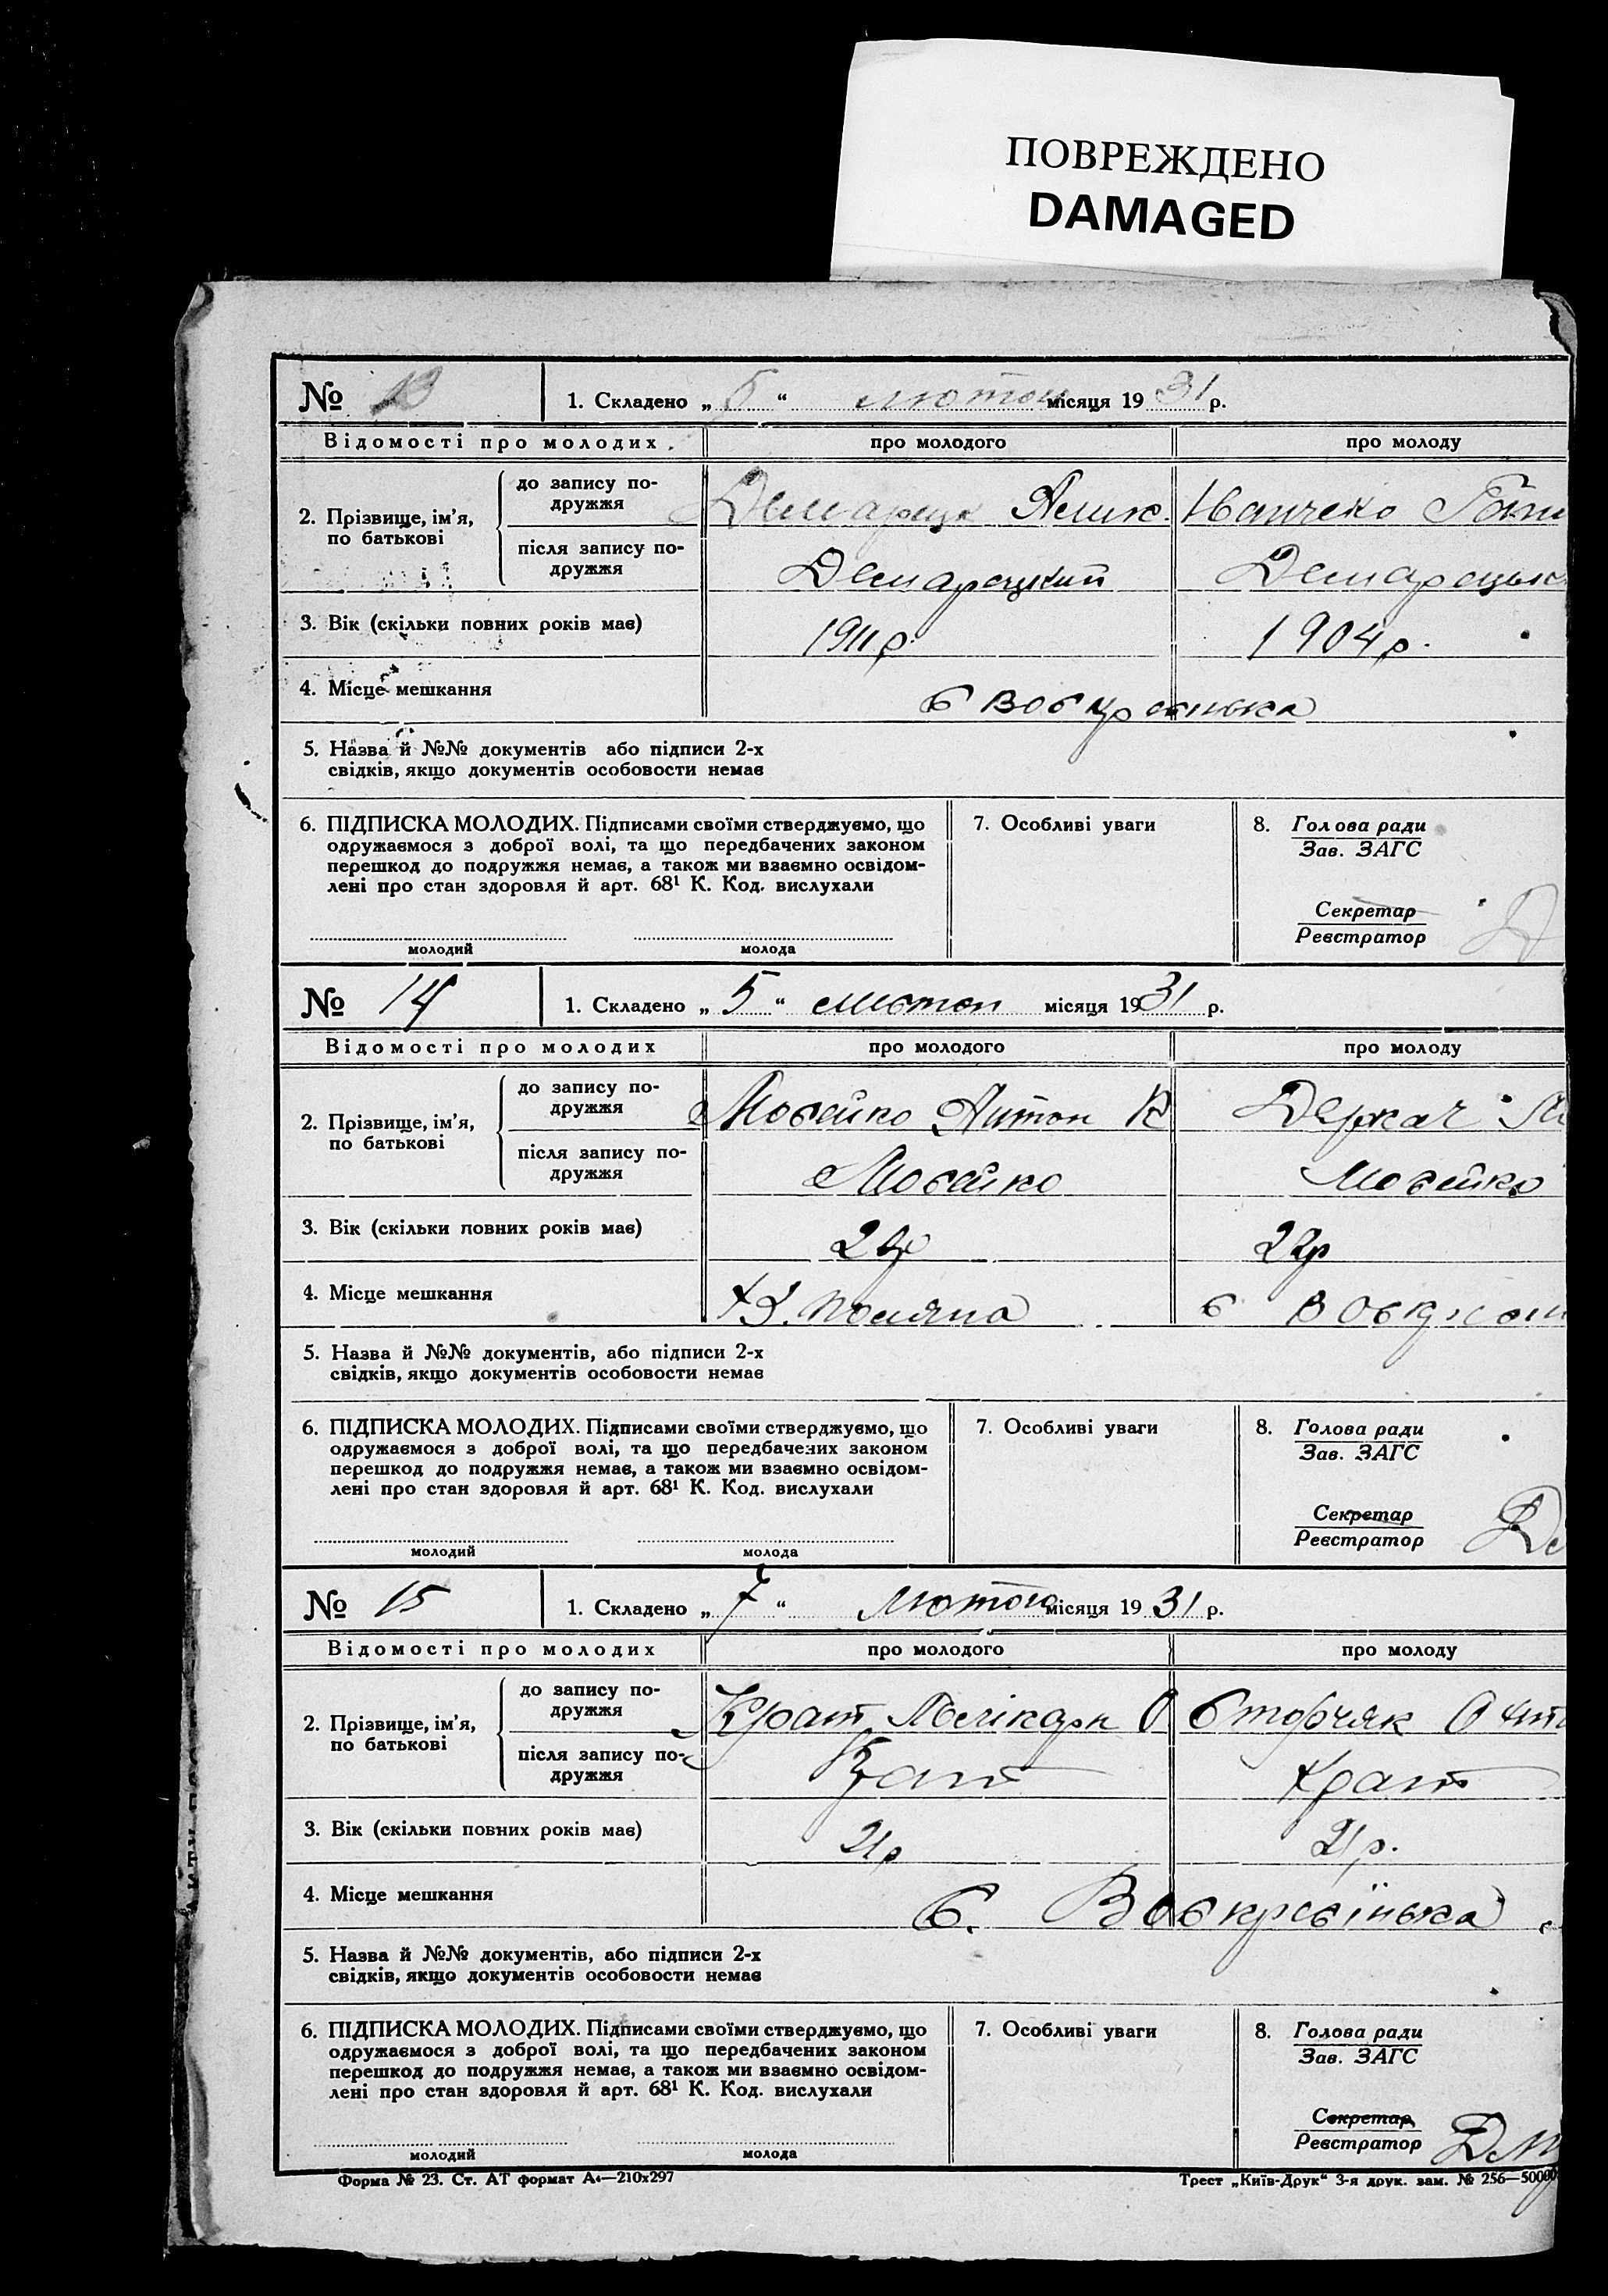 ПОВРЕЖДЕНО
DAMAGED
№ 13 1. Складено „ 5 “ лютого місяця 19 31 р.
Відомості про молодих про молодого про молоду
2. Прізвище, ім’я, по батькові
до запису подружжя
після запису подружжя Демарецкий
3. Вік (скільки повних років має) 1911 р. 1904 р.
4. Місце мешкання
5. Назва й №№ документів або підписи 2-х
свідків, якщо документів особовости немає
6. ПІДПИСКА МОЛОДИХ. Підписами своїми стверджуємо, що
одружаємося з доброї волі, та що передбачених законом
перешкод до подружжя немає, а також ми взаємно освідом-
лені про стан здоровля й арт. 68¹ К. Код. вислухали
молодий молода
7. Особливі уваги
8. Голова ради
Зав. ЗАГС
Секретар
Реєстратор
№ 14 1. Складено „ 5 “ лютого місяця 19 31 р.
Відомості про молодих про молодого про молоду
2. Прізвище, ім’я, по батькові
до запису подружжя Мовейко Антон К Деркач
після запису подружжя Мовейко Мовейко
3. Вік (скільки повних років має) 22р
4. Місце мешкання
5. Назва й №№ документів, або підписи 2-х
свідків, якщо документів особовости немає
6. ПІДПИСКА МОЛОДИХ. Підписами своїми стверджуємо, що
одружаємося з доброї волі, та що передбачених законом
перешкод до подружжя немає, а також ми взаємно освідом-
лені про стан здоровля й арт. 68¹ К. Код. вислухали
молодий молода
7. Особливі уваги
8. Голова ради
Зав. ЗАГС
Секретар
Реєстратор
№ 15 1. Складено „ 7 “ лютого місяця 19 31 р.
Відомості про молодих про молодого про молоду
2. Прізвище, ім’я, по батькові
до запису подружжя Крат О
після запису подружжя Крат Крат
3. Вік (скільки повних років має) 21р 21р.
4. Місце мешкання С. Воскресінська
5. Назва й №№ документів, або підписи 2-х
свідків, якщо документів особовости немає
6. ПІДПИСКА МОЛОДИХ. Підписами своїми стверджуємо, що
одружаємося з доброї волі, та що передбачених законом
перешкод до подружжя немає, а також ми взаємно освідом-
лені про стан здоровля й арт. 68¹ К. Код. вислухали
молодий молода
7. Особливі уваги
8. Голова ради
Зав. ЗАГС
Секретар
Реєстратор
Форма № 23. Ст. АТ формат А4—210х297 Трест „Київ-Друк“ 3-я друк. зам. № 256—50000